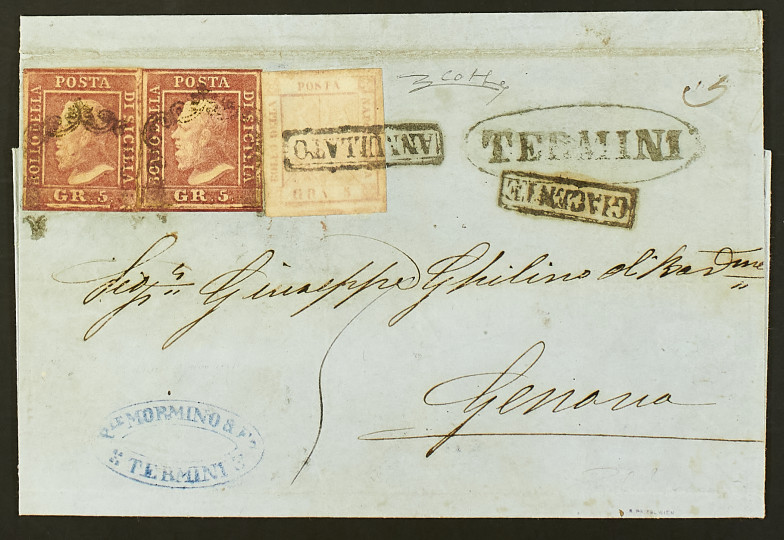 POSTA
BOLLO DELLA
DI SICILIA
GR. 5.
POSTA
BOLLO DELLA
DI SICILIA
GR. 5.
POSTA
BOLLO DELLA
GRA 5
ANNULLATO
TERMINI
GIACENTE
Giuseppe Ghilino di Bard.me
Genova
P.lle MORMINO & F.
TERMINI